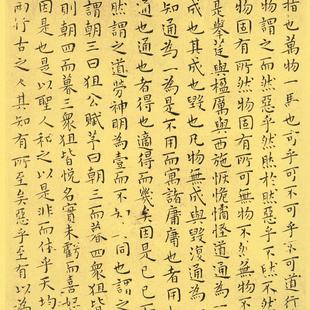 指也萬物一馬也可乎可不可乎不可道行
物謂之而然惡乎然然於然惡乎不然不然
物固有所然物固有所可無物不然無物
是舉莛與楹厲與西施恢恑憰怪道通為
也其成也毀也凡物無成與毀復通為一
通為一為是不用而寓諸庸庸也者用
也通也者得也適得而幾矣因是已已
然謂之道勞神明為壹而不同也謂
謂朝三曰狙公賦芧曰朝三而暮四眾狙皆
則朝四而暮三眾狙皆悅名實未虧而喜怒
因是也是以聖人和之以是非而休乎天均
而行古之人其知有所至矣惡乎至有以為